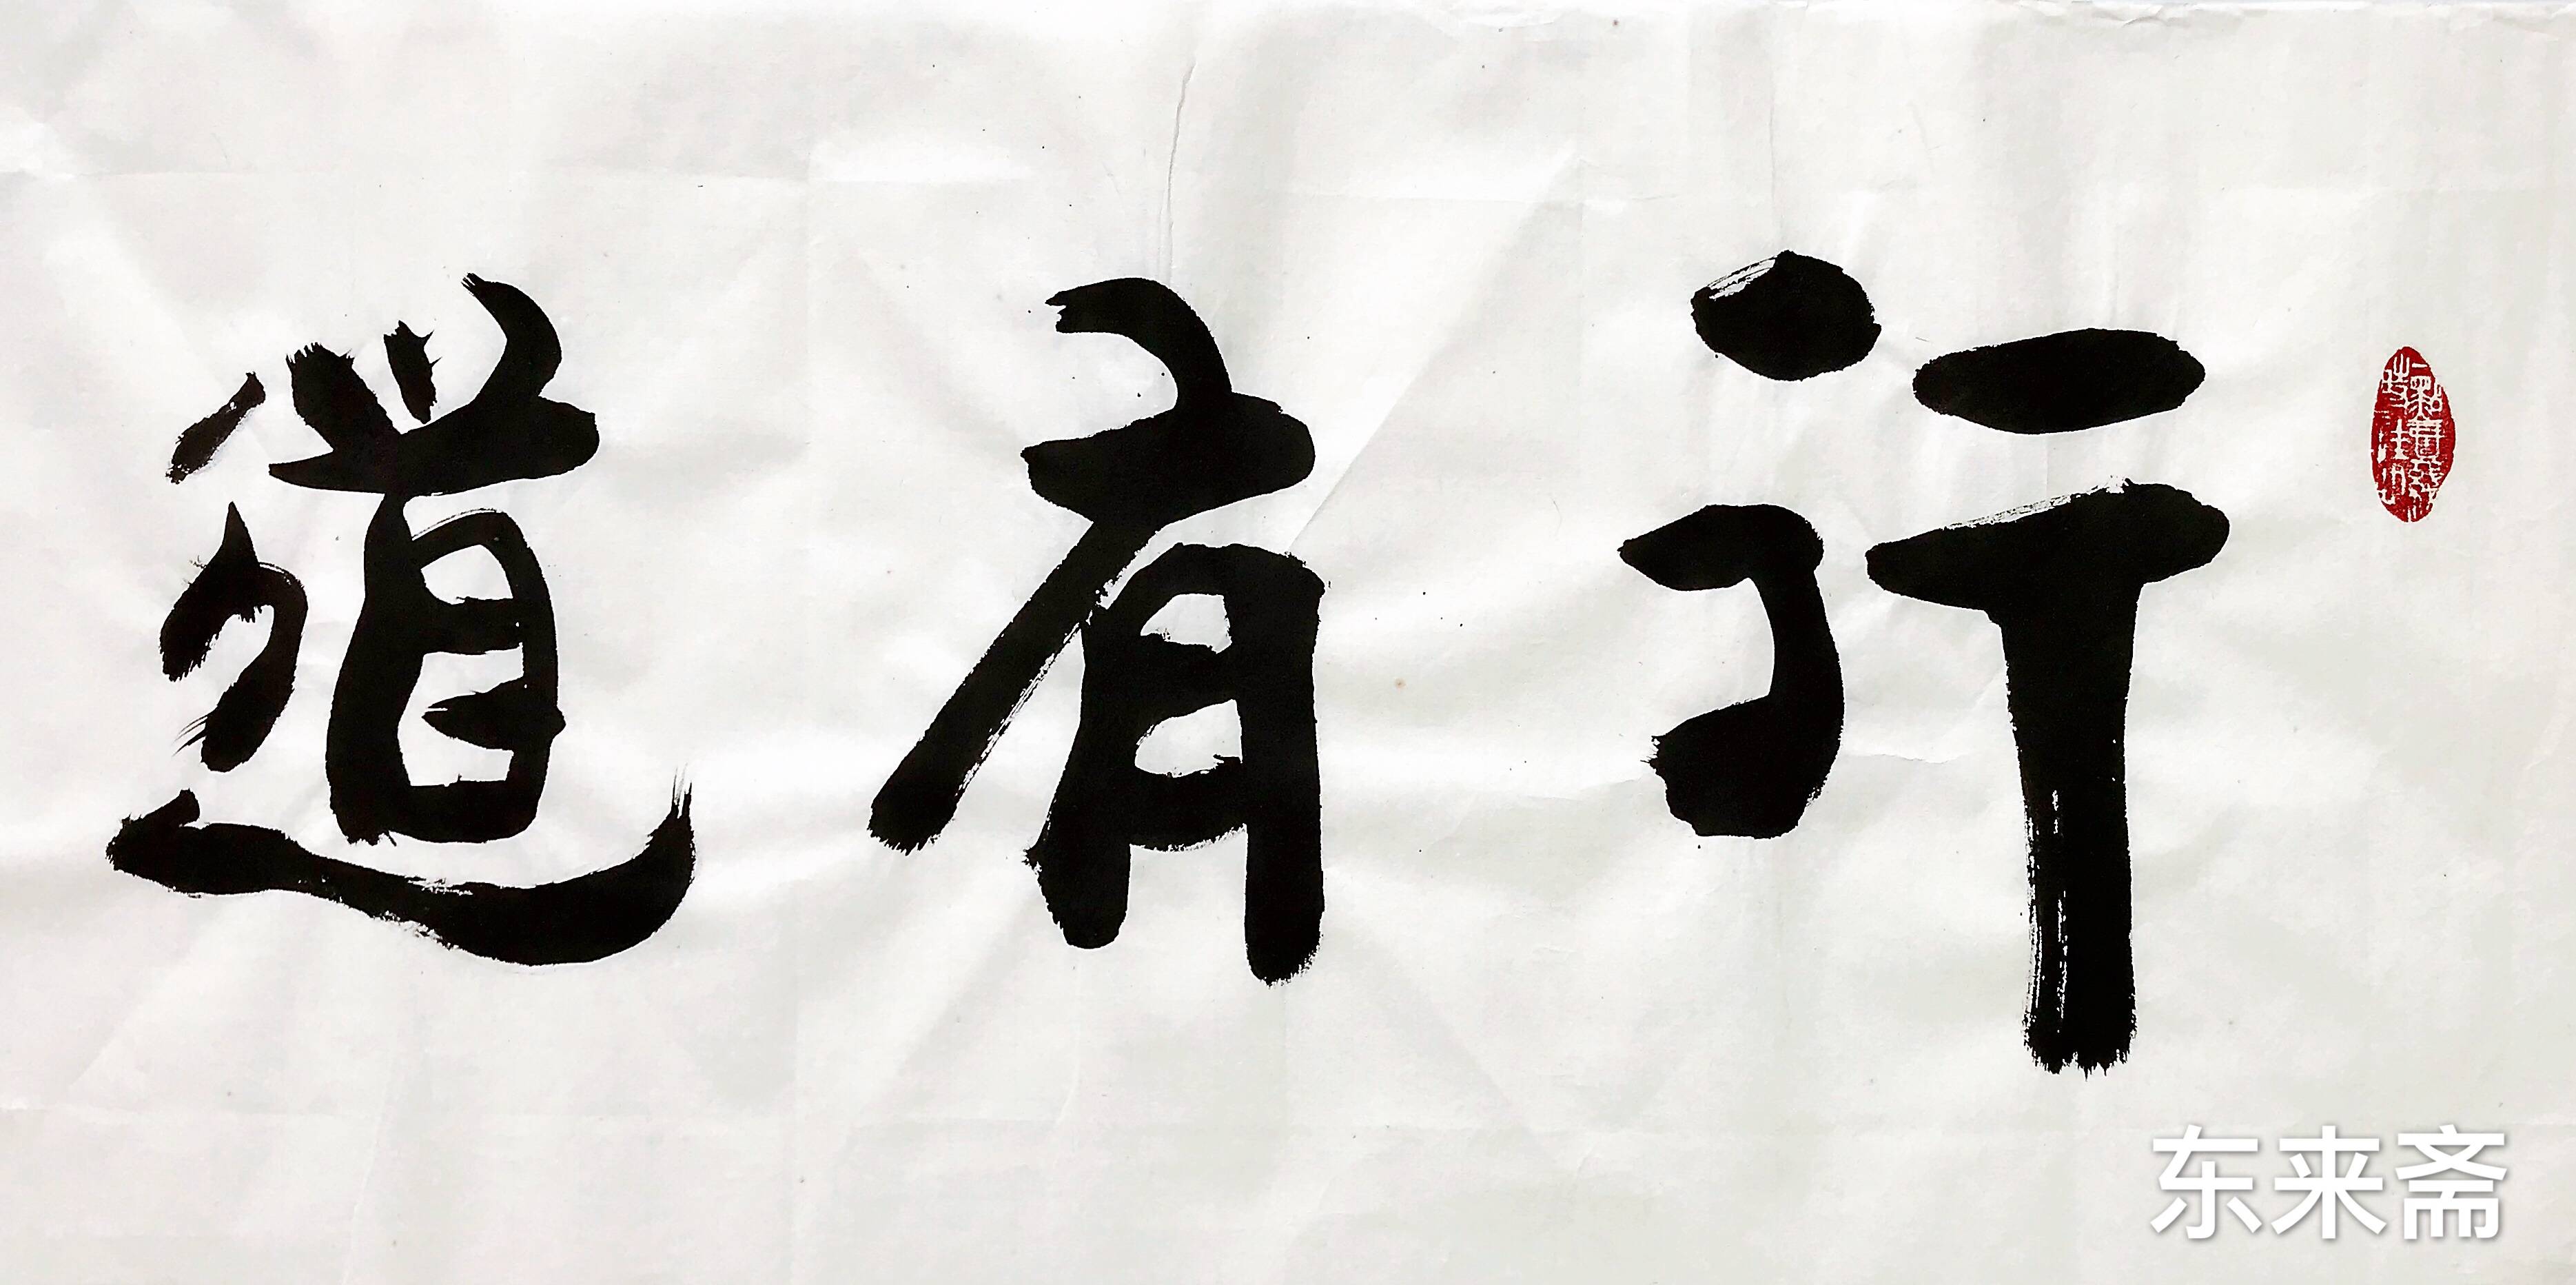 行有道
东来斋